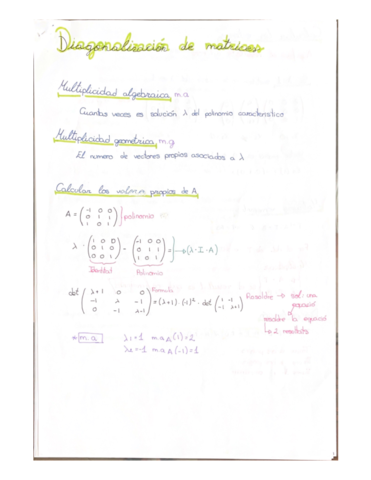 Diagonalización de matrices
Multiplicidad algebraica, m.a
Cuantas veces es solución λ del polinomio característico
Multiplicidad geométrica, m.g
El numero de vectores propios asociados a λ
Calcular los valores propios de A
A = (-1 0 0 / 0 1 1 / 1 0 1) polinomio
λ · (1 0 0 / 0 1 0 / 0 0 1) - (-1 0 0 / 1 1 / 1 0 1) = → (λ · I - A)
Identidad Polinomio
det (λ+1 0 0 / -1 λ -1 / 0 -1 λ-1) Formula = (λ+1) · (-1)² · det Resolver →
resolver la equació
→ 2 resultats
m.a λ1=1 m a A(1) = 2
λ2=-1 m a A(-1) = 1